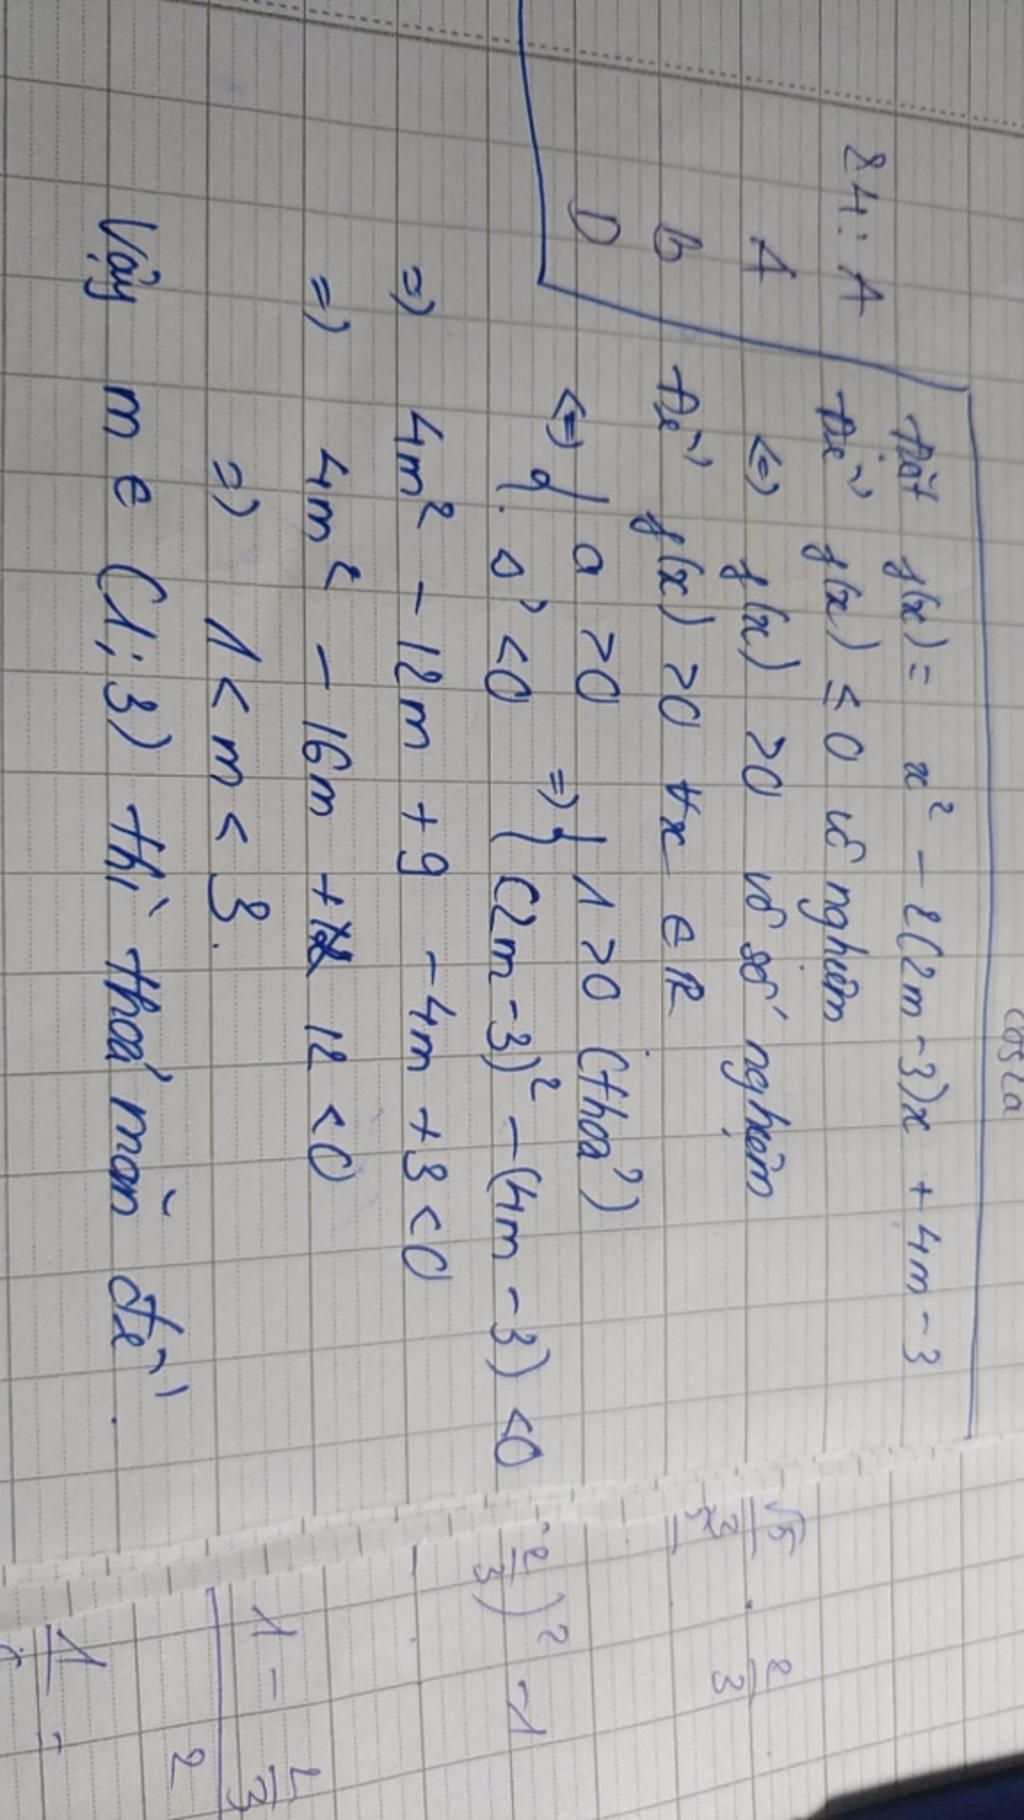 cos2a
Đặt f(x) = x² - 2(2m-3)x + 4m - 3
24: A
Để f(x) ≤ 0 vô nghiệm
A
<=> f(x) >0 vô số nghiệm
B
Để f(x) >0 ∀x ∈ R
D
<=> { a >0 => { 1 >0 (thoả)
{ Δ' <0 { (2m-3)² - (4m-3) <0
=> 4m² - 12m + 9 - 4m + 3 <0
=> 4m² - 16m + 12 <0
=> 1 < m < 3.
Vậy m ∈ (1;3) thì thoả mãn đề.
2/3
2/3)² -1
1 -
2
1 =